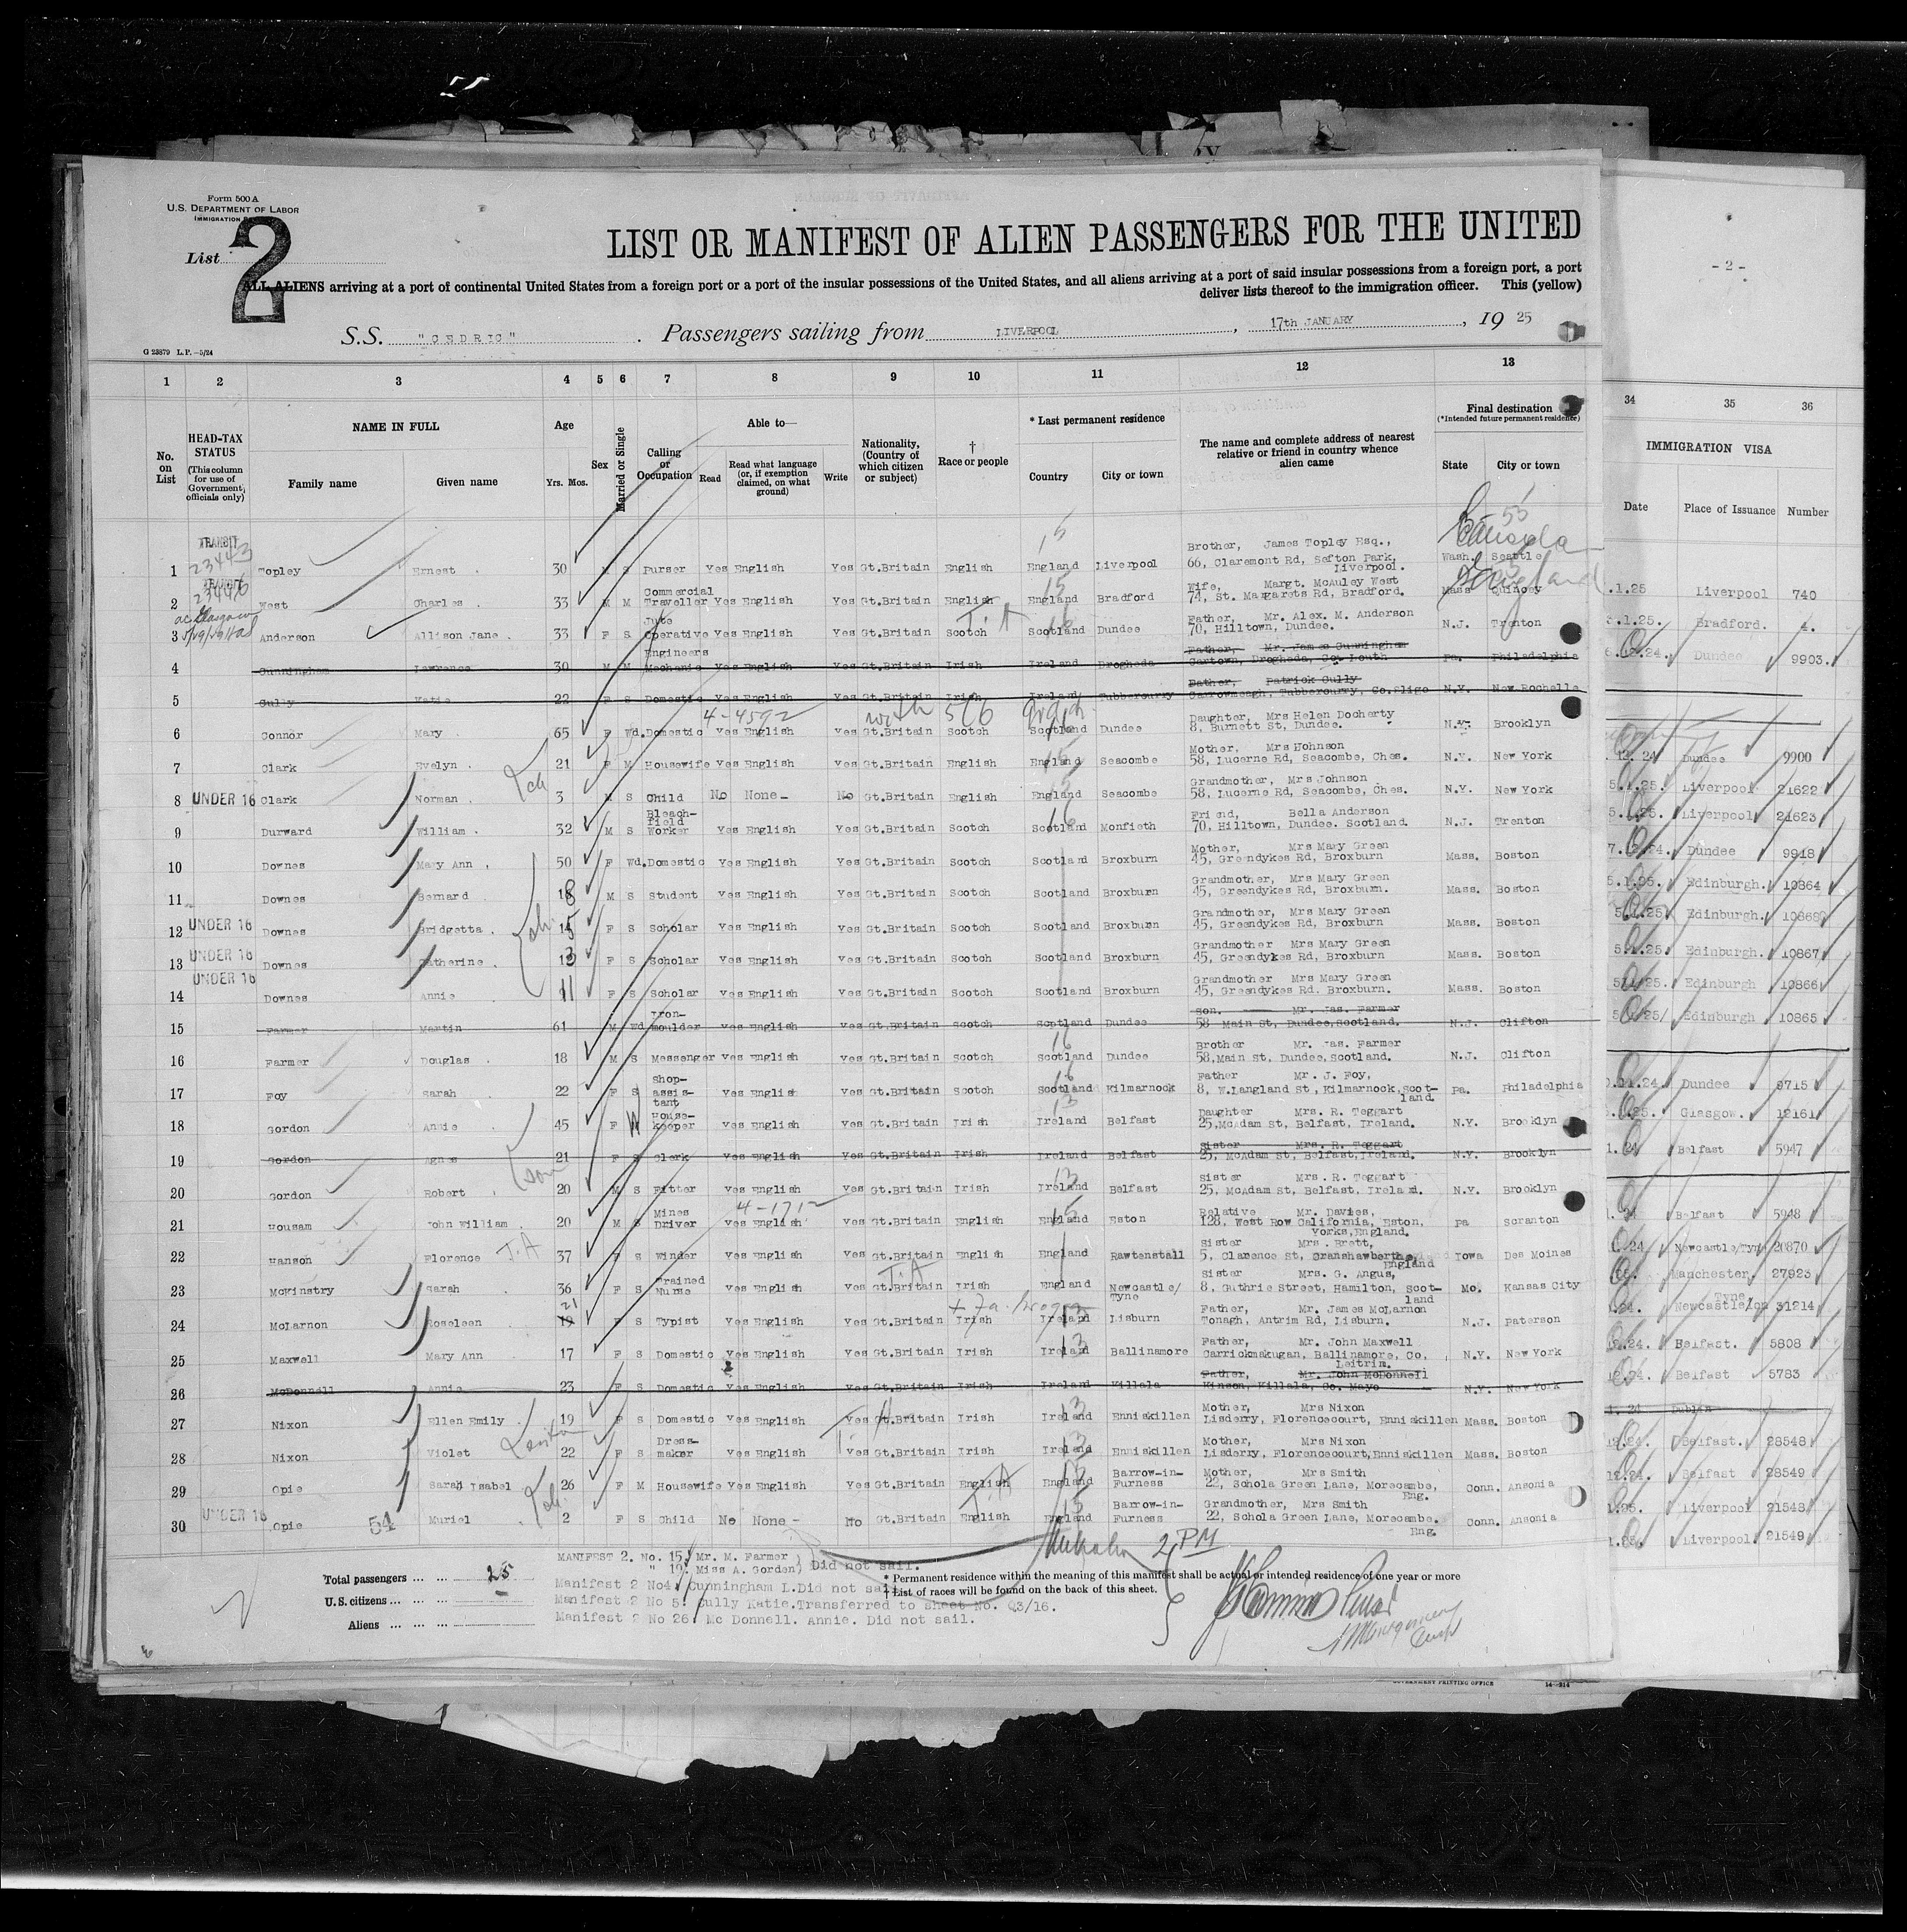 Form 500 A
U.S. DEPARTMENT OF LABOR
IMMIGRATION
List 2
LIST OR MANIFEST OF ALIEN PASSENGERS FOR THE UNITED
ALL ALIENS arriving at a port of continental United States from a foreign port or a port of the insular possessions of the United States, and all aliens arriving at a port of said insular possessions from a foreign port, a port
deliver lists thereof to the immigration officer. This (yellow)
- 2 -
S.S. "CEDRIC". Passengers sailing from LIVERPOOL, 17th JANUARY, 19 25
G 23879 L.P.-5/24
1 2 3 4 5 6 7 8 9 10 11 12 13 34 35 36
No. on List
HEAD-TAX STATUS (This column for use of Government officials only)
NAME IN FULL
Family name Given name
Age Yrs. Mos.
Sex
Married or Single
Calling or Occupation
Able to—
Read Read what language (or, if exemption claimed, on what ground) Write
Nationality, (Country of which citizen or subject)
† Race or people
* Last permanent residence
Country City or town
The name and complete address of nearest relative or friend in country whence alien came
Final destination (*Intended future permanent residence)
State City or town
IMMIGRATION VISA
Date Place of Issuance Number
TRANSIT 23443
1 Topley Ernest 30 M S Purser Yes English Yes Gt.Britain English England Liverpool Brother, James Topley Esq., 66, Claremont Rd, Sefton Park, Liverpool. Wash. Seattle
TRANSIT 23446
2 West Charles 33 M M Commercial Traveller Yes English Yes Gt.Britain English England Bradford Wife, Margt. McAuley West 74, St. Margarets Rd, Bradford. Mass Quincey
3 Anderson Allison Jane 33 F S Jute Operative Yes English Yes Gt.Britain Scotch Scotland Dundee Father, Mr. Alex. M. Anderson 70, Hilltown, Dundee. N.J. Trenton
4 Cunningham Lawrence 30 M M Engineers Mechanic Yes English Yes Gt.Britain Irish Ireland Drogheda Father, Mr. James Cunningham Gartown, Drogheda, Co. Louth Pa. Philadelphia
5 Gully Katie 22 F S Domestic Yes English Yes Gt.Britain Irish Ireland Tubbercurry Father, Patrick Gully Carrowneagh, Tubbercurry, Co.Sligo N.Y. New Rochelle
6 Connor Mary 65 F Wd. Domestic Yes English Yes Gt.Britain Scotch Scotland Dundee Daughter, Mrs Helen Docherty 8, Burnett St, Dundee. N.Y. Brooklyn
7 Clark Evelyn 21 F M Housewife Yes English Yes Gt.Britain English England Seacombe Mother, Mrs Johnson 58, Lucerne Rd, Seacombe, Ches. N.Y. New York
8 UNDER 16 Clark Norman 3 M S Child No None - No Gt.Britain English England Seacombe Grandmother, Mrs Johnson 58, Lucerne Rd, Seacombe, Ches. N.Y. New York
9 Durward William 32 M S Bleach-field Worker Yes English Yes Gt.Britain Scotch Scotland Monfieth Friend, Bella Anderson 70, Hilltown, Dundee. Scotland. N.J. Trenton
10 Downes Mary Ann 50 F Wd. Domestic Yes English Yes Gt.Britain Scotch Scotland Broxburn Mother, Mrs Mary Green 45, Greendykes Rd, Broxburn Mass. Boston
11 Downes Bernard 18 M S Student Yes English Yes Gt.Britain Scotch Scotland Broxburn Grandmother, Mrs Mary Green 45, Greendykes Rd, Broxburn. Mass. Boston
12 UNDER 16 Downes Bridgetta 15 F S Scholar Yes English Yes Gt.Britain Scotch Scotland Broxburn Grandmother, Mrs Mary Green 45, Greendykes Rd, Broxburn Mass. Boston
13 UNDER 16 Downes Catherine 13 F S Scholar Yes English Yes Gt.Britain Scotch Scotland Broxburn Grandmother Mrs Mary Green 45, Greendykes Rd, Broxburn Mass. Boston
14 UNDER 16 Downes Annie 11 F S Scholar Yes English Yes Gt.Britain Scotch Scotland Broxburn Grandmother Mrs Mary Green 45, Greendykes Rd. Broxburn. Mass. Boston
15 Farmer Martin 61 M Wd Iron-moulder Yes English Yes Gt.Britain Scotch Scotland Dundee son. Mr. Jas. Farmer 58 Main St, Dundee,Scotland. N.J. Clifton
16 Farmer Douglas 18 M S Messenger Yes English Yes Gt.Britain Scotch Scotland Dundee Brother Mr. Jas. Farmer 58,Main St, Dundee,Scotland. N.J. Clifton
17 Foy Sarah 22 F S Shop-assis-tant Yes English Yes Gt.Britain Scotch Scotland Kilmarnock Father Mr. J. Foy, 8, W.Langland St, Kilmarnock,Scot-land. Pa. Philadelphia
18 Gordon Annie 45 F W House-keeper Yes English Yes Gt.Britain Irish Ireland Belfast Daughter Mrs. R. Teggart 25,McAdam St, Belfast, Ireland. N.Y. Brooklyn
19 Gordon Agnes 21 F S Clerk Yes English Yes Gt.Britain Irish Ireland Belfast Sister Mrs. R. Teggart 25, McAdam St, Belfast,Ireland. N.Y. Brooklyn
20 Gordon Robert 20 M S Fitter Yes English Yes Gt.Britain Irish Ireland Belfast Sister Mrs. R. Teggart 25, McAdam St, Belfast, Ireland. N.Y. Brooklyn
21 Housam John William 20 M S Mines Driver Yes English Yes Gt.Britain English England Eston Relative Mr. Davies, 128, West Row California, Eston, Yorks,England. Pa Scranton
22 Hanson Florence 37 F S Winder Yes English Yes Gt.Britain English England Rawtenstall Sister Mrs. Brett, 5, Clarence St, Cranshawbooth England Iowa Des Moines
23 McKinstry Sarah 36 F S Trained Nurse Yes English Yes Gt.Britain Irish England Newcastle/Tyne Sister Mrs. G. Angus, 8, Guthrie Street, Hamilton, Scot-land Mo. Kansas City
24 McLarnon Roseleen 21 F S Typist Yes English Yes Gt.Britain Irish Ireland Lisburn Father, Mr. James McLarnon Tonagh, Antrim Rd, Lisburn. N.J. Paterson
25 Maxwell Mary Ann 17 F S Domestic Yes English Yes Gt.Britain Irish Ireland Ballinamore Father, Mr. John Maxwell Carrickmakugan, Ballinamore, Co, Leitrim. N.Y. New York
26 McDonnell Annie 23 F S Domestic Yes English Yes Gt.Britain Irish Ireland Killala Father, Mr. John McDonnell Kinson, Killala, Co. Mayo N.Y. New York
27 Nixon Ellen Emily 19 F S Domestic Yes English Yes Gt.Britain Irish Ireland Enniskillen Mother, Mrs Nixon Lisderry, Florencecourt, Enniskillen Mass. Boston
28 Nixon Violet 22 F S Dress-maker Yes English Yes Gt.Britain Irish Ireland Enniskillen Mother, Mrs Nixon Lisderry, Florencecourt,Enniskillen Mass. Boston
29 Opie Sarah Isabel 26 F M Housewife Yes English Yes Gt.Britain English England Barrow-in-Furness Mother, Mrs Smith 22, Schola Green Lane, Morecambe, Eng. Conn. Ansonia
30 UNDER 16 Opie 54 Muriel 2 F S Child No None - No Gt.Britain English England Barrow-in-Furness Grandmother, Mrs Smith 22, Schola Green Lane, Morecambe. Eng. Conn. Ansonia
.1.25 Liverpool 740
5.1.25. Bradford. 4.
6.12.24. Dundee 9903.
12.24 Dundee 9900
5.1.25. Liverpool 21622
5.1.25. Liverpool 21623
Dundee 9918
Edinburgh. 10864
5.1.25 Edinburgh. 10868
5.1.25. Edinburgh. 10867
5.1.25. Edinburgh 10866
5.1.25/ Edinburgh 10865
Dundee 9715
Glasgow. 12161
Belfast 5947
Belfast 5948
Newcastle/Tyne 20870
Manchester. 27923
Newcastle/on Tyne 31214
Belfast. 5808
Belfast 5783
Dublin
Belfast. 28548
Belfast 28549
Liverpool 21548
Liverpool 21549
Total passengers 25
U.S. citizens
Aliens
MANIFEST 2. No. 15. Mr. M. Farmer)
" 19. Miss A. Gordon) Did not sail.
Manifest 2 No4. Cunningham L.Did not sail.
Manifest 2 No 5. Gully Katie.Transferred to sheet No. Q3/16.
Manifest 2 No 26. Mc Donnell. Annie. Did not sail.
2 PM
* Permanent residence within the meaning of this manifest shall be actual or intended residence of one year or more
† List of races will be found on the back of this sheet.
GOVERNMENT PRINTING OFFICE 14-214